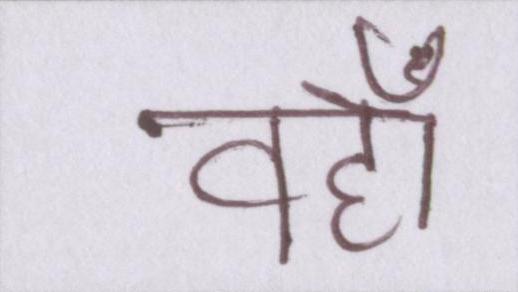 वहाँ